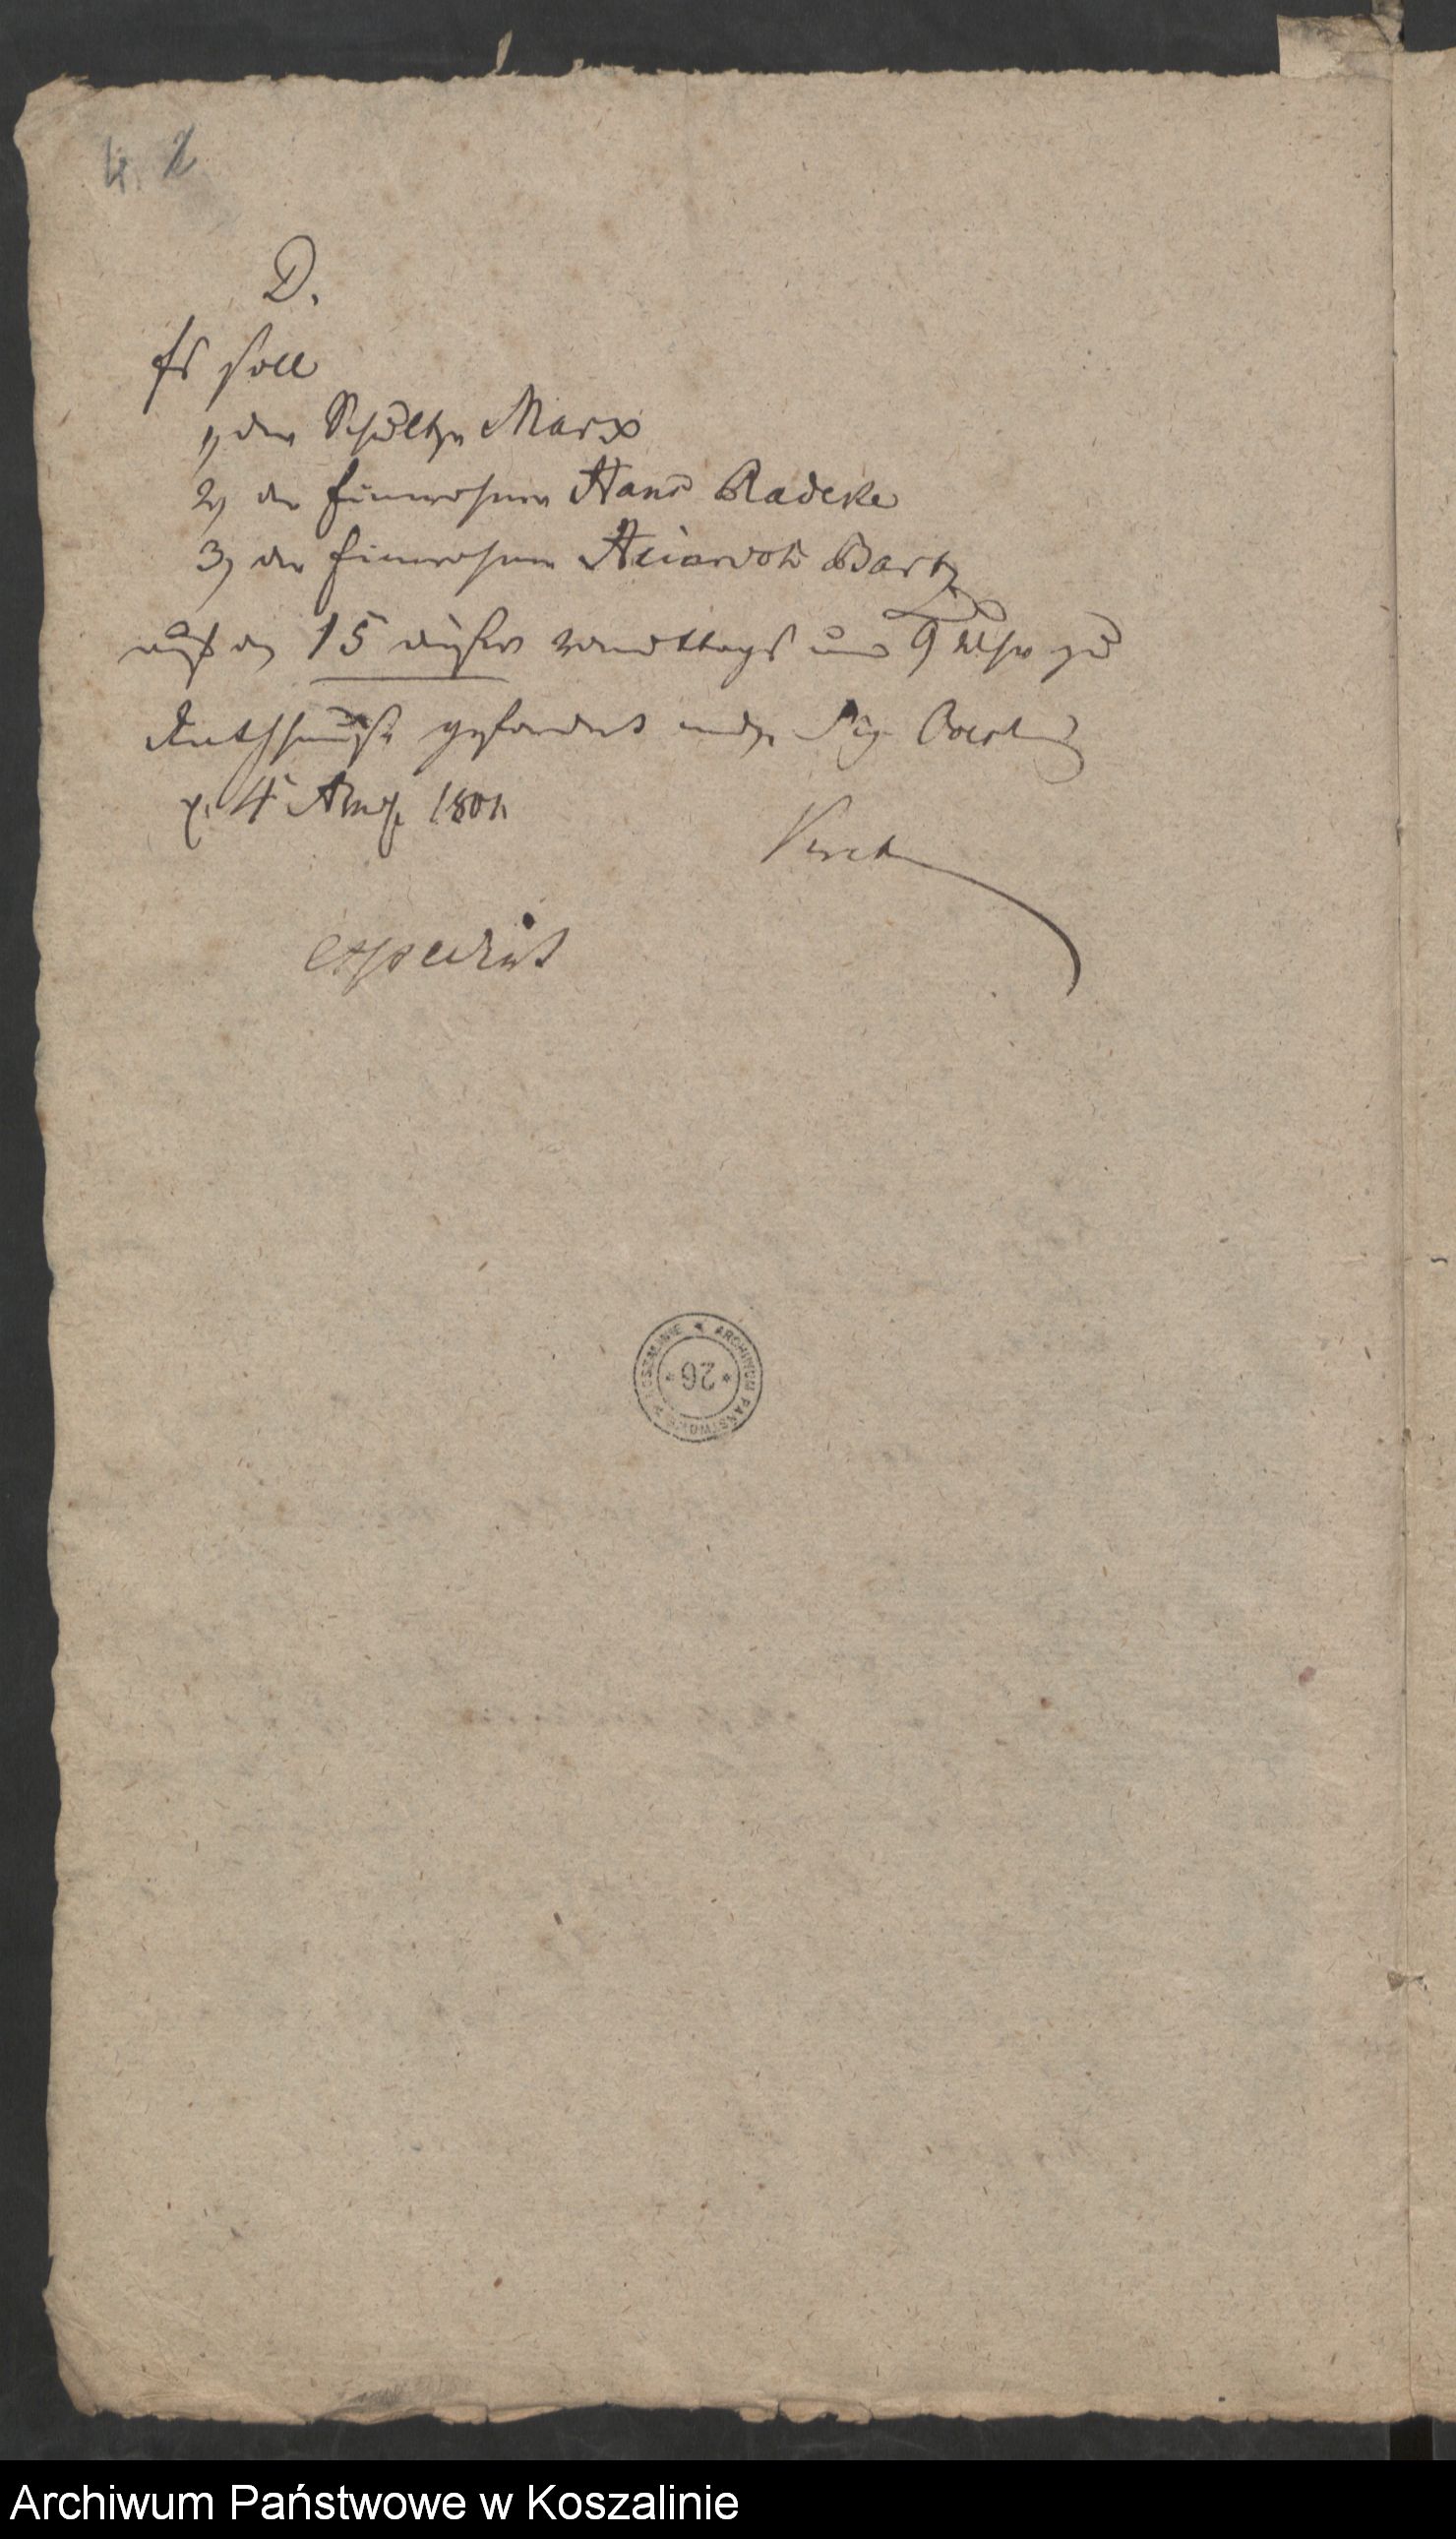 4. 2
D.
Es soll
1, der Schultze Marx
2, der Einwohner Hans Radeke
3, der Einwohner Bartz
auf den 15 dieses vormittags um 9 Uhr zu
Rathhause gefordert werden Sig.
d. 4 Aug. 1801.
expedirt
ARCHIWUM PAŃSTWOWE W KOSZALINIE
* 26 *
Archiwum Państwowe w Koszalinie